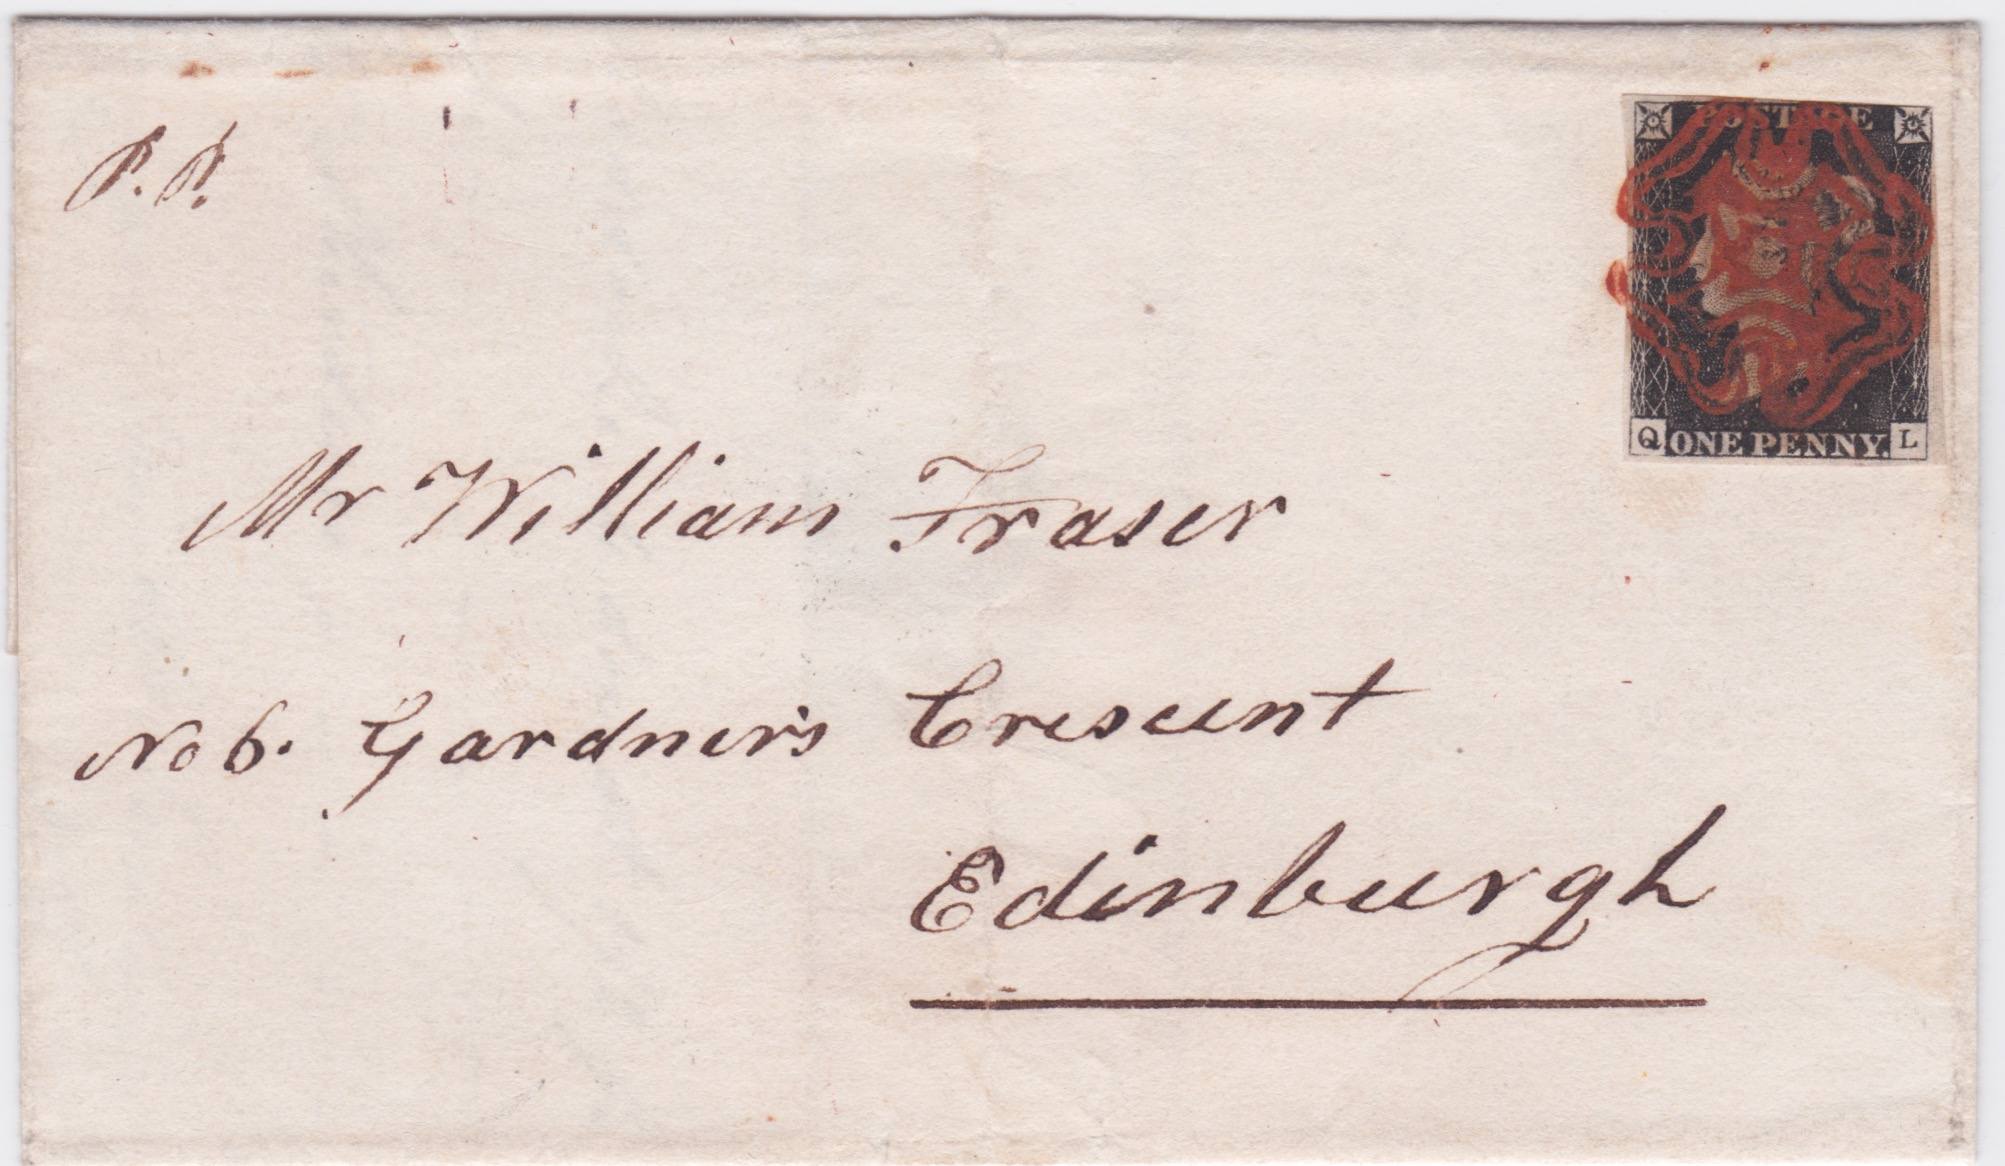 P. P.
POSTAGE
Q ONE PENNY. L
Mr William Fraser
No 6. Gardner's Crescent
Edinburgh